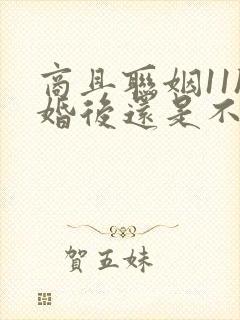 商且聯姻11
婚後還是不
賀五妹